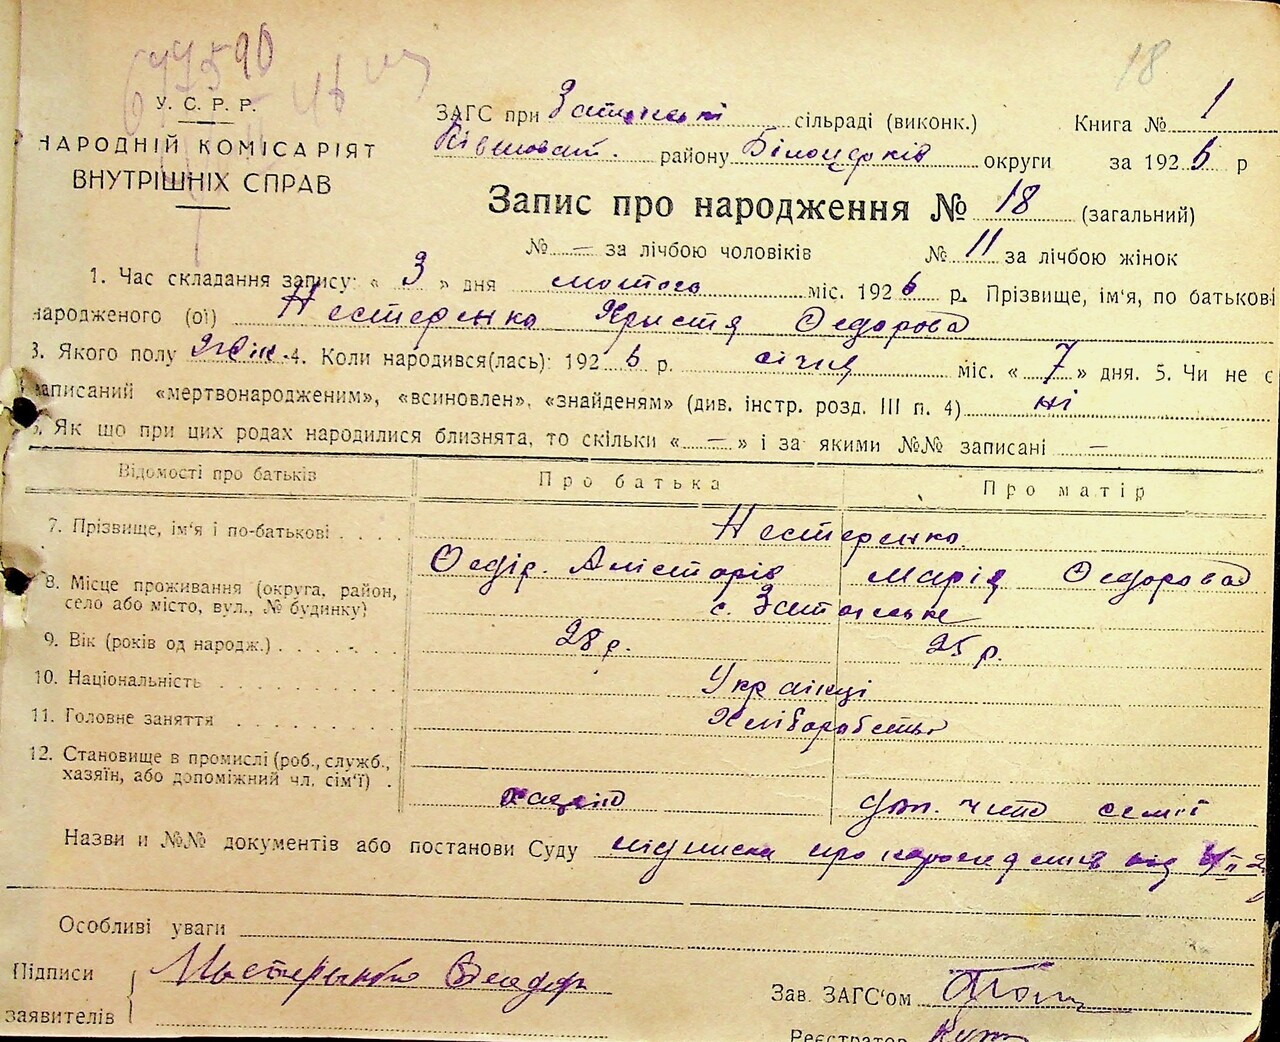 18
У. С. Р. Р.
НАРОДНІЙ КОМІСАРІЯТ
ВНУТРІШНІХ СПРАВ
ЗАГС при сільраді (виконк.)
Книга № 1
району Білоцерків округи за 1926 р
Запис про народження № 18 (загальний)
№ — за лічбою чоловіків № 11 за лічбою жінок
1. Час складання запису: « 3 » дня лютого міс. 1926 р. Прізвище, ім'я, по батькові
народженого (ої) Нестеренко Христя Федорова
3. Якого полу Жін. 4. Коли народився(лась): 1926 р. січня міс. « 7 » дня. 5. Чи не є
записаний «мертвонародженим», «всиновлен», «знайденям» (див. інстр. розд. III п. 4) ні
6. Як що при цих родах народилися близнята, то скільки « — » і за якими №№ записані —
Відомості про батьків Про батька Про матір
7. Прізвище, ім'я і по-батькові Нестеренко
Федір Марія Федорова
8. Місце проживання (округа, район,
село або місто, вул., № будинку) с.
9. Вік (років од народж.) 28 р. 25 р.
10. Національність Українці
11. Головне заняття Хліборобство
12. Становище в промислі (роб., служб.,
хазяїн, або допоміжний чл. сім'ї)
хазяїн доп. член семії
Назви и №№ документів або постанови Суду підписка про народження від
Особливі уваги
Підписи
заявителів
Зав. ЗАГС'ом
Реєстратор